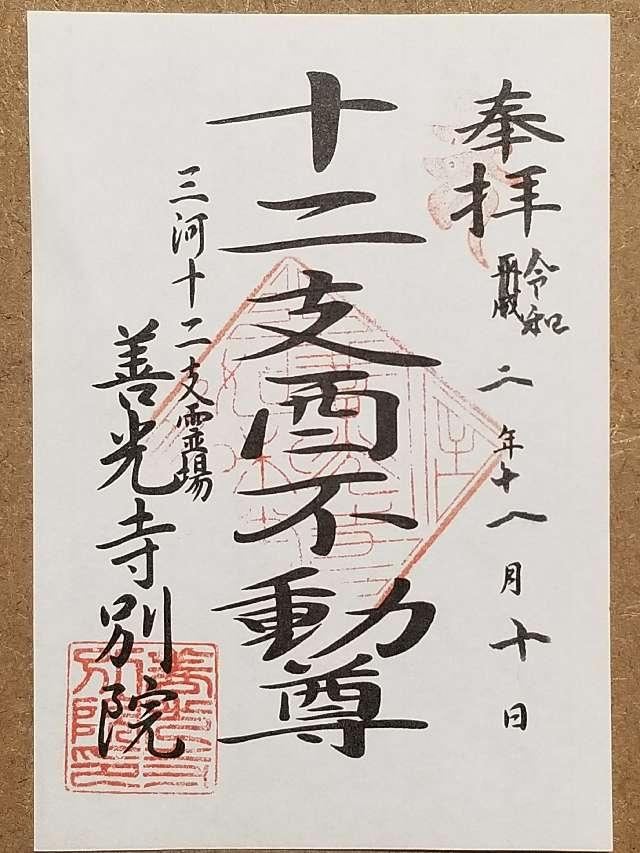 奉拝
令和
平成
二年十二月十日
十二支酉不動尊
三河十二支霊場
善光寺別院